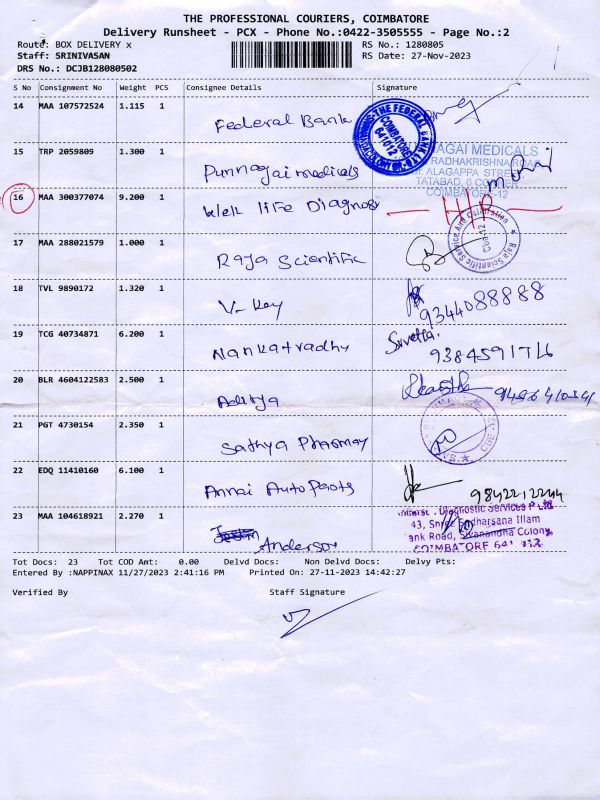 THE PROFESSIONAL COURIERS, COIMBATORE
Delivery Runsheet - PCX - Phone No.:0422-3505555 - Page No.:2
Route: BOX DELIVERY x
RS No.: 1280805
Staff: SRINIVASAN
RS Date: 27-Nov-2023
DRS No.: DCJB128080502
S No Consignment No Weight PCS Consignee Details Signature
14 MAA 107572524 1.115 1 Federal Bank
THE FEDERAL BANK LTD
COIMBATORE
641012
15 TRP 2059809 1.300 1 Punnagai medicals
PUNNAGAI MEDICALS
RADHAKRISHNA ROAD
ALAGAPPA STREET
TATABAD, 6 CORNER
COIMBATORE-12
16 MAA 300377074 9.200 1 life Diagnosi
17 MAA 288021579 1.000 1 Raja Scientific
Raja Scientific Service And Calibration
Cbe-12
18 TVL 9890172 1.320 1 V-Key
9344088888
19 TCG 40734871 6.200 1 Nankatradhu
Swetha.
20 BLR 4604122583 2.500 1 Aditya
21 PGT 4730154 2.350 1 Sathya Pharmay
22 EDQ 11410160 6.100 1 Annai Auto Parts
9842212244
23 MAA 104618921 2.270 1 Anderson
Diagnostic Services P Ltd
43, Sudharsana Illam
ank Road, Sivanandha Colony,
COIMBATORE 641 012.
Tot Docs: 23 Tot COD Amt: 0.00 Delvd Docs: Non Delvd Docs: Delvy Pts:
Entered By :NAPPINAX 11/27/2023 2:41:16 PM Printed On: 27-11-2023 14:42:27
Verified By Staff Signature